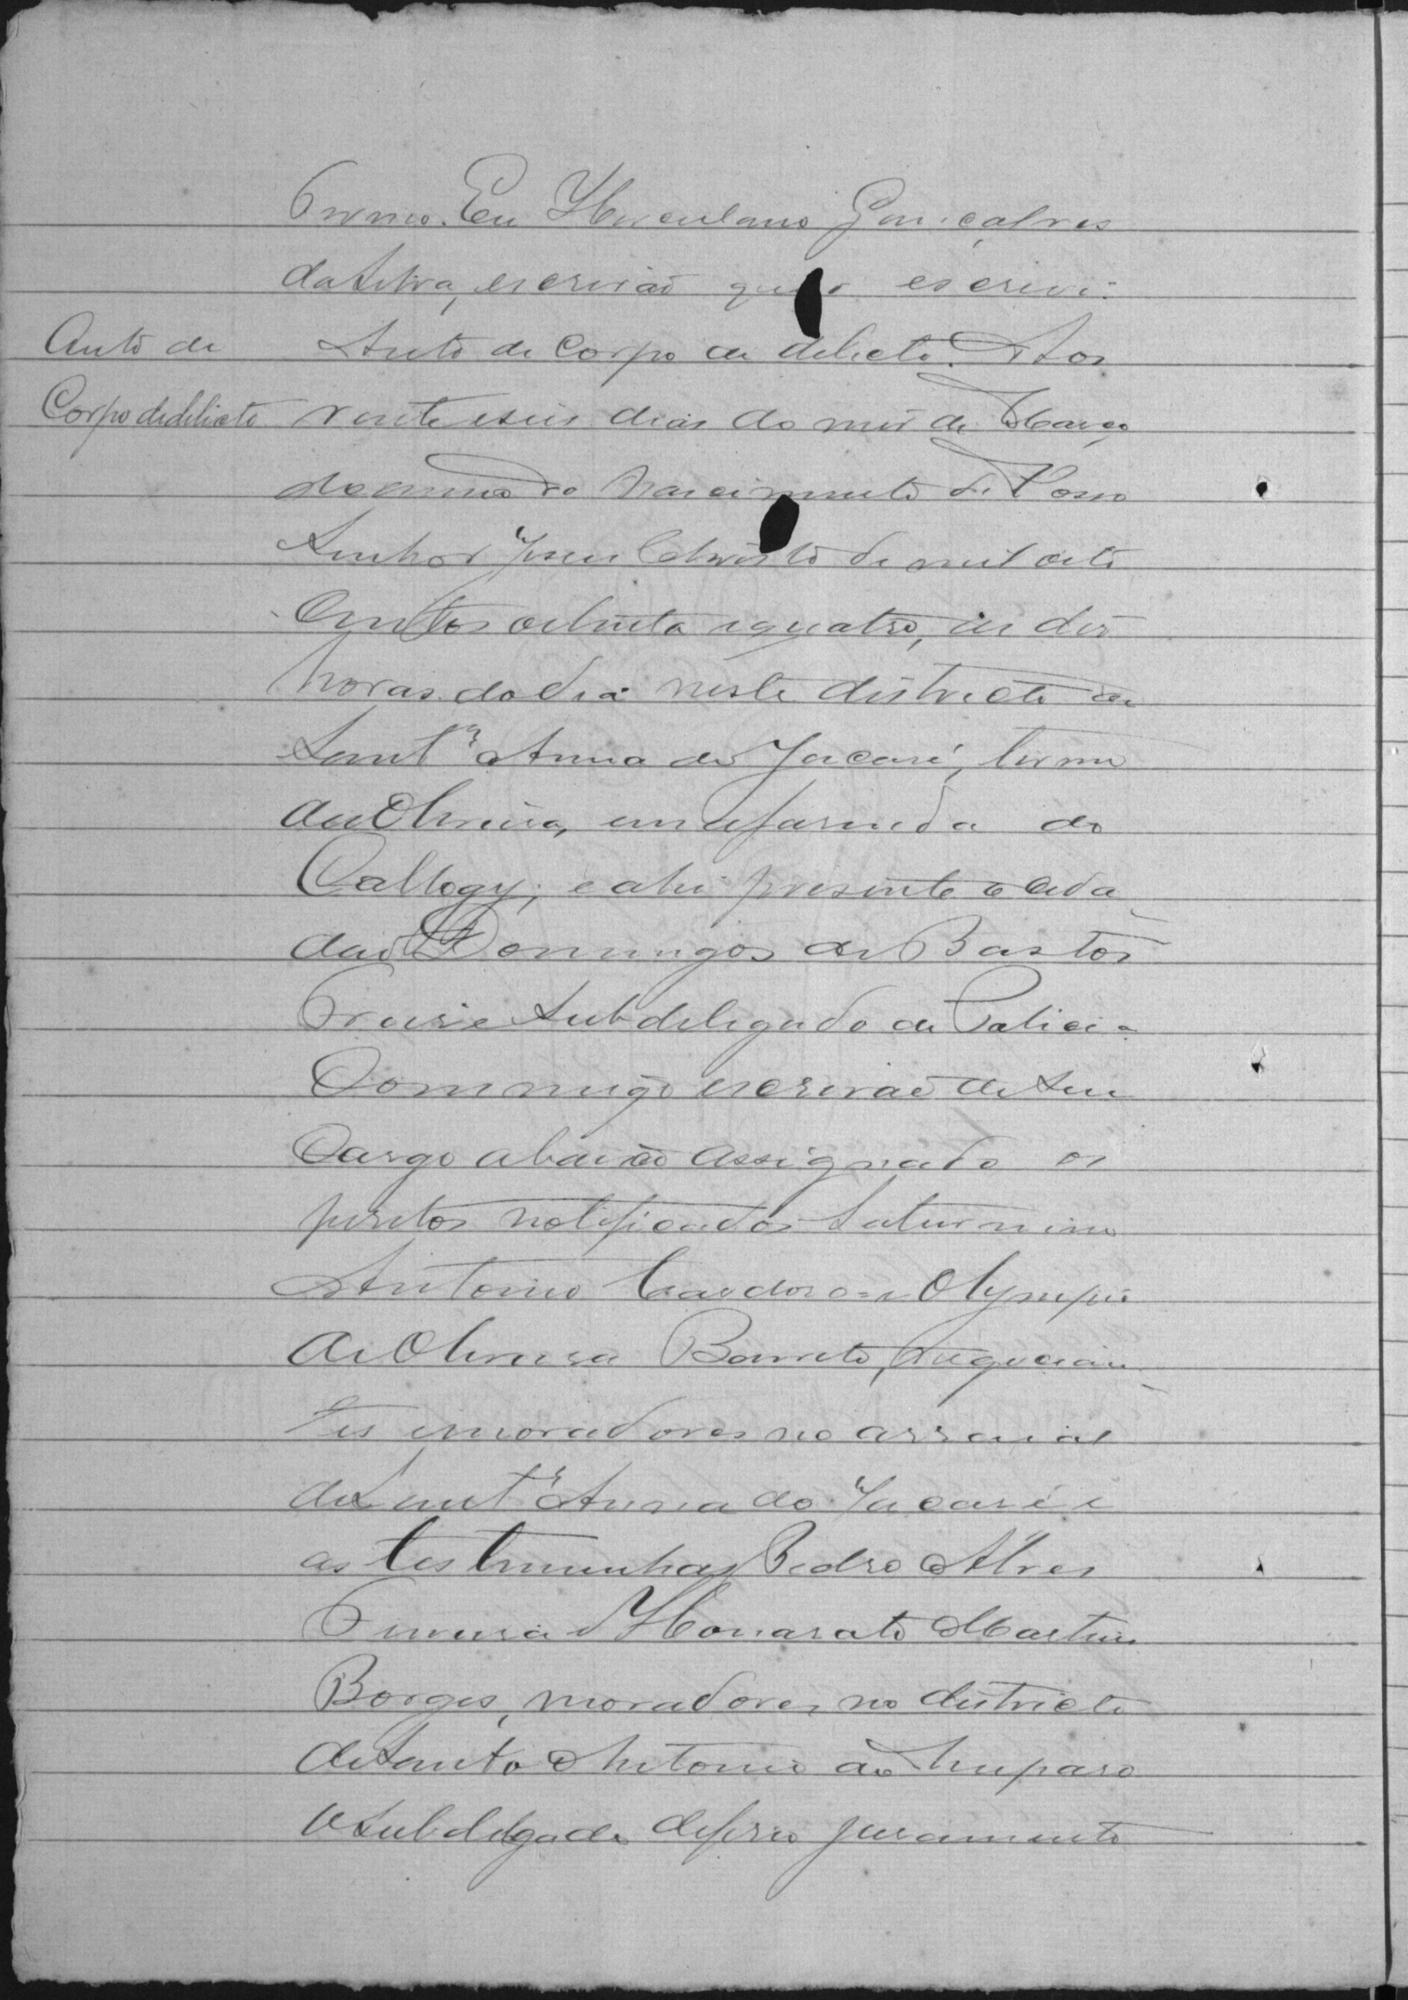 Eu Herculano Gonçalves
da Silva, escrivão que o escrevi.
Auto de
Corpo de delicto
Auto de Corpo de delicto. Aos
vinte e seis dias do mes de Março
do anno do Nascimento de Nosso
Senhor Jesus Christo de mil oito
centos oitenta e quatro, as dez
horas do dia neste districto de
Sant'Anna do Jacaré, termo
de Oliveira, em a fasenda do
e ahi presente o cida
dão Domingos de Bastos
Subdelegado de Policia
Commigo escrivão de seu
Cargo abaixo assignado os
peritos notificados Saturnino
Antonio Theodoro e Olympio
de Oliveira Barreto, negocian
tes e moradores no arraial
de Sant'Anna do Jacaré e
as testemunhas Pedro Alves
Honorato Martins
Borges, moradores no districto
de Santo Antonio do Amparo
o Subdelegado deferio juramento